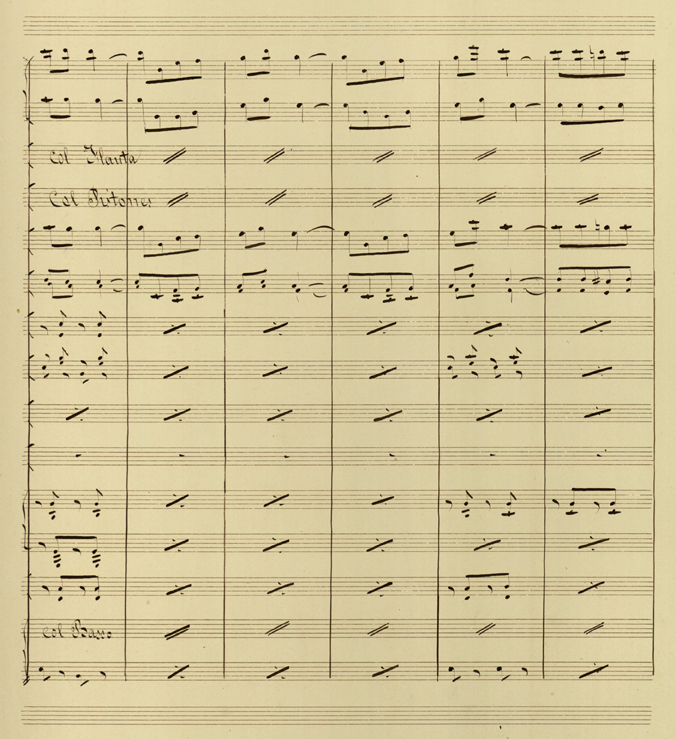 Col Flauta
Col Pistones
Col Basso